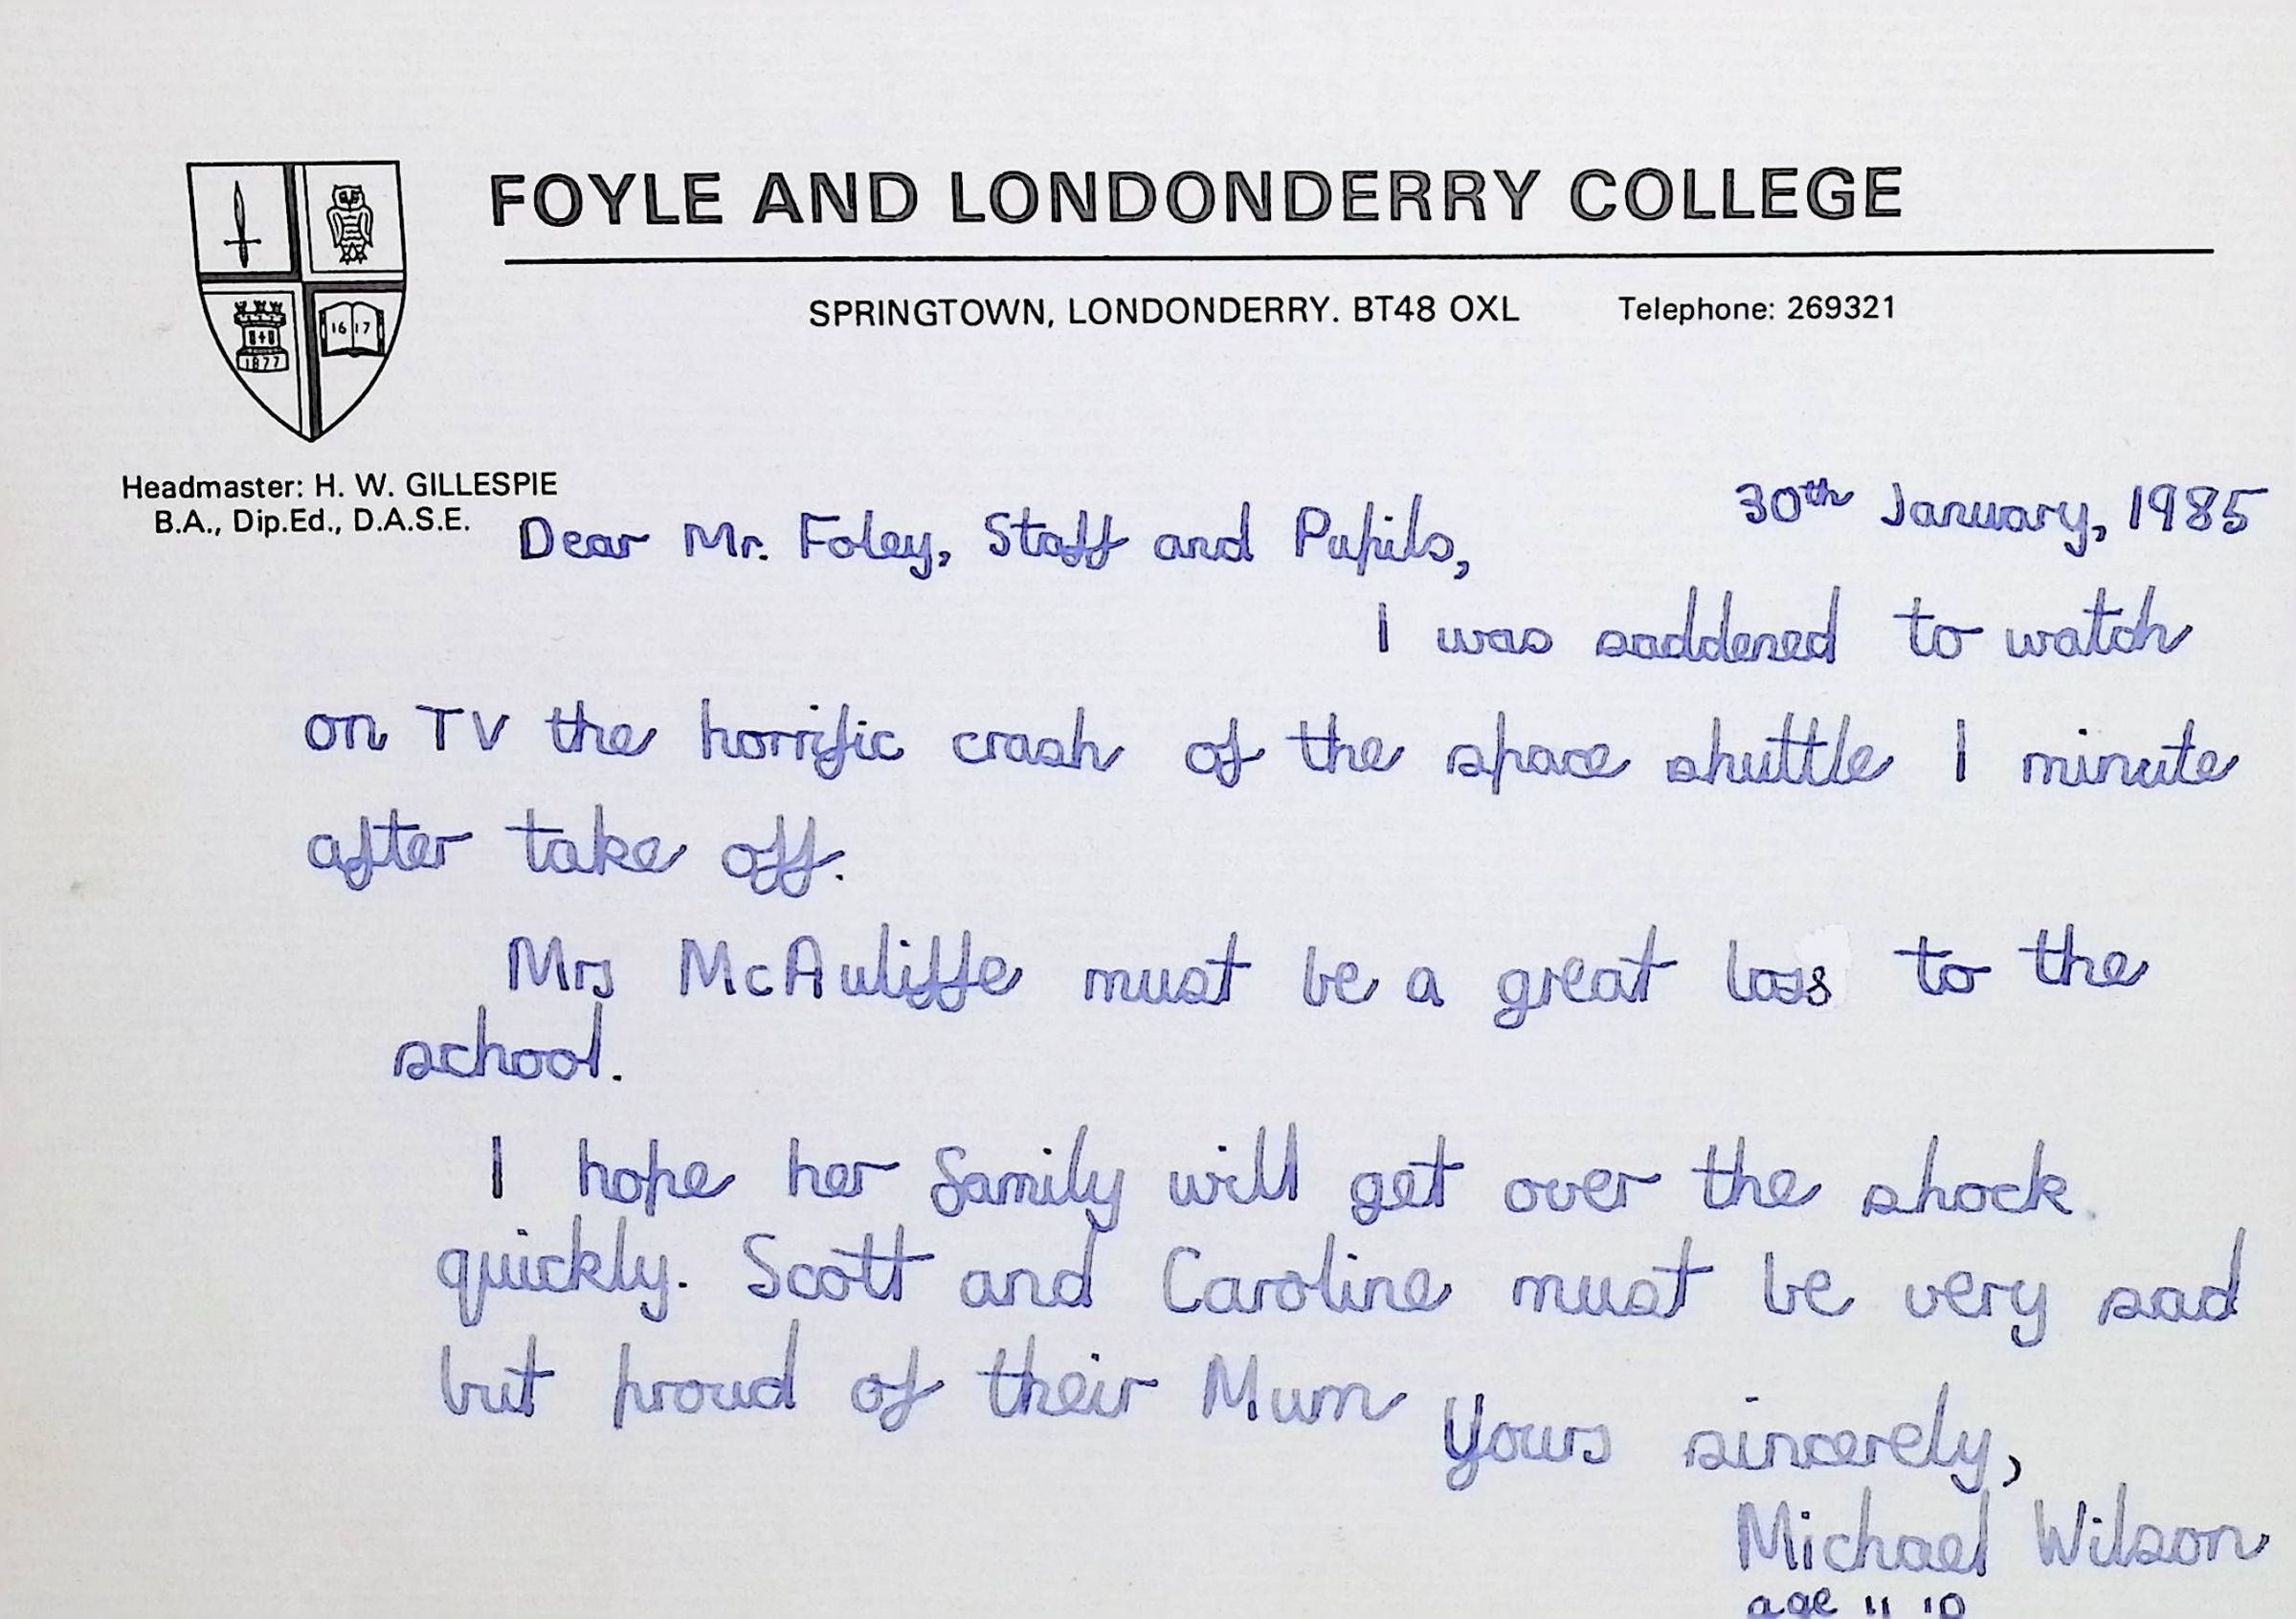 FOYLE AND LONDONDERRY COLLEGE
SPRINGTOWN, LONDONDERRY. BT48 OXL Telephone: 269321
16 17
1877
Headmaster: H. W. GILLESPIE
B.A., Dip.Ed., D.A.S.E.
30th January, 1985
Dear Mr. Foley, Staff and Pupils,
I was saddened to watch
on TV the horrific crash of the space shuttle 1 minute
after take off.
Mrs McAuliffe must be a great loss to the
school.
I hope her family will get over the shock
quickly. Scott and Caroline must be very sad
but proud of their Mum
Yours sincerely,
Michael Wilson
age 11